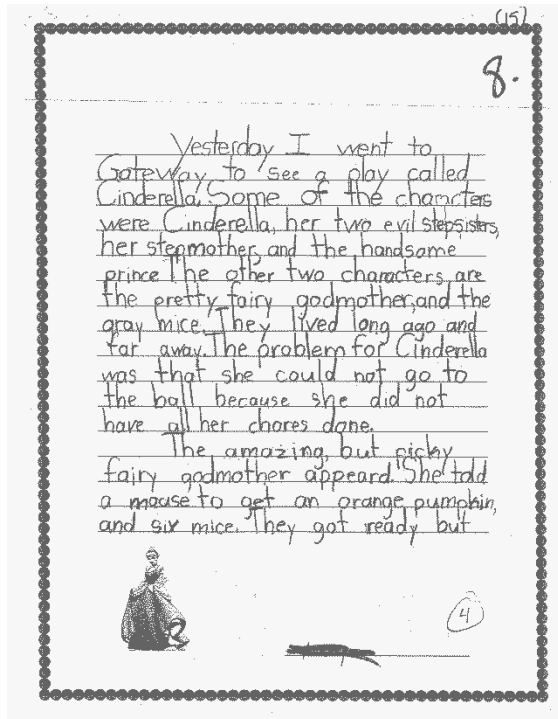 (15)
8.
Yesterday I went to
Gateway to see a play called
Cinderella. Some of the characters
were Cinderella, her two evil stepsisters,
her stepmother, and the handsome
prince. The other two characters are
the pretty fairy godmother, and the
gray mice. They lived long ago and
far away. The problem for Cinderella
was that she could not go to
the ball because she did not
have all her chores done.
The amazing, but picky
fairy godmother appeard. She told
a mouse to get an orange pumpkin,
and six mice. They got ready but
4